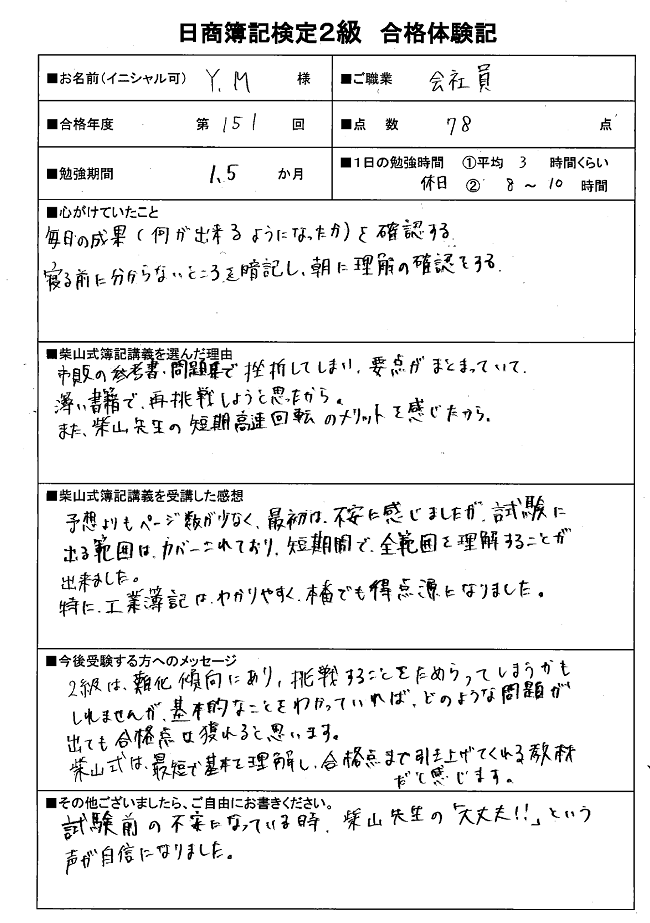 日商簿記検定2級 合格体験記
■お名前(イニシャル可) Y.M 様 ■ご職業 会社員
■合格年度 第 151 回 ■点数 78 点
■勉強期間 1.5 か月 ■1日の勉強時間 ①平均 3 時間くらい
休日 ② 8～10 時間
■心がけていたこと
毎日の成果(何が出来るようになったか)を確認する.
寝る前に分からないところを暗記し、朝に理解の確認をする.
■柴山式簿記講義を選んだ理由
市販の参考書・問題集で挫折してしまい、要点がまとまっていて、
薄い書籍で、再挑戦しようと思ったから。
また、柴山先生の短期高速回転のメリットを感じたから。
■柴山式簿記講義を受講した感想
予想よりもページ数が少なく、最初は、不安に感じましたが、試験に
出る範囲は、カバーされており、短期間で、全範囲を理解することが
出来ました。
特に、工業簿記は、わかりやすく、本番でも得点源になりました。
■今後受験する方へのメッセージ
2級は、難化傾向にあり、挑戦することをためらってしまうかも
しれませんが、基本的なことをわかっていれば、どのような問題が
出ても合格点は獲れると思います。
柴山式は、最短で基本を理解し、合格点まで引き上げてくれる教材
だと感じます。
■その他ございましたら、ご自由にお書きください。
試験前の不安になっている時、柴山先生の「大丈夫!!」という
声が自信になりました。